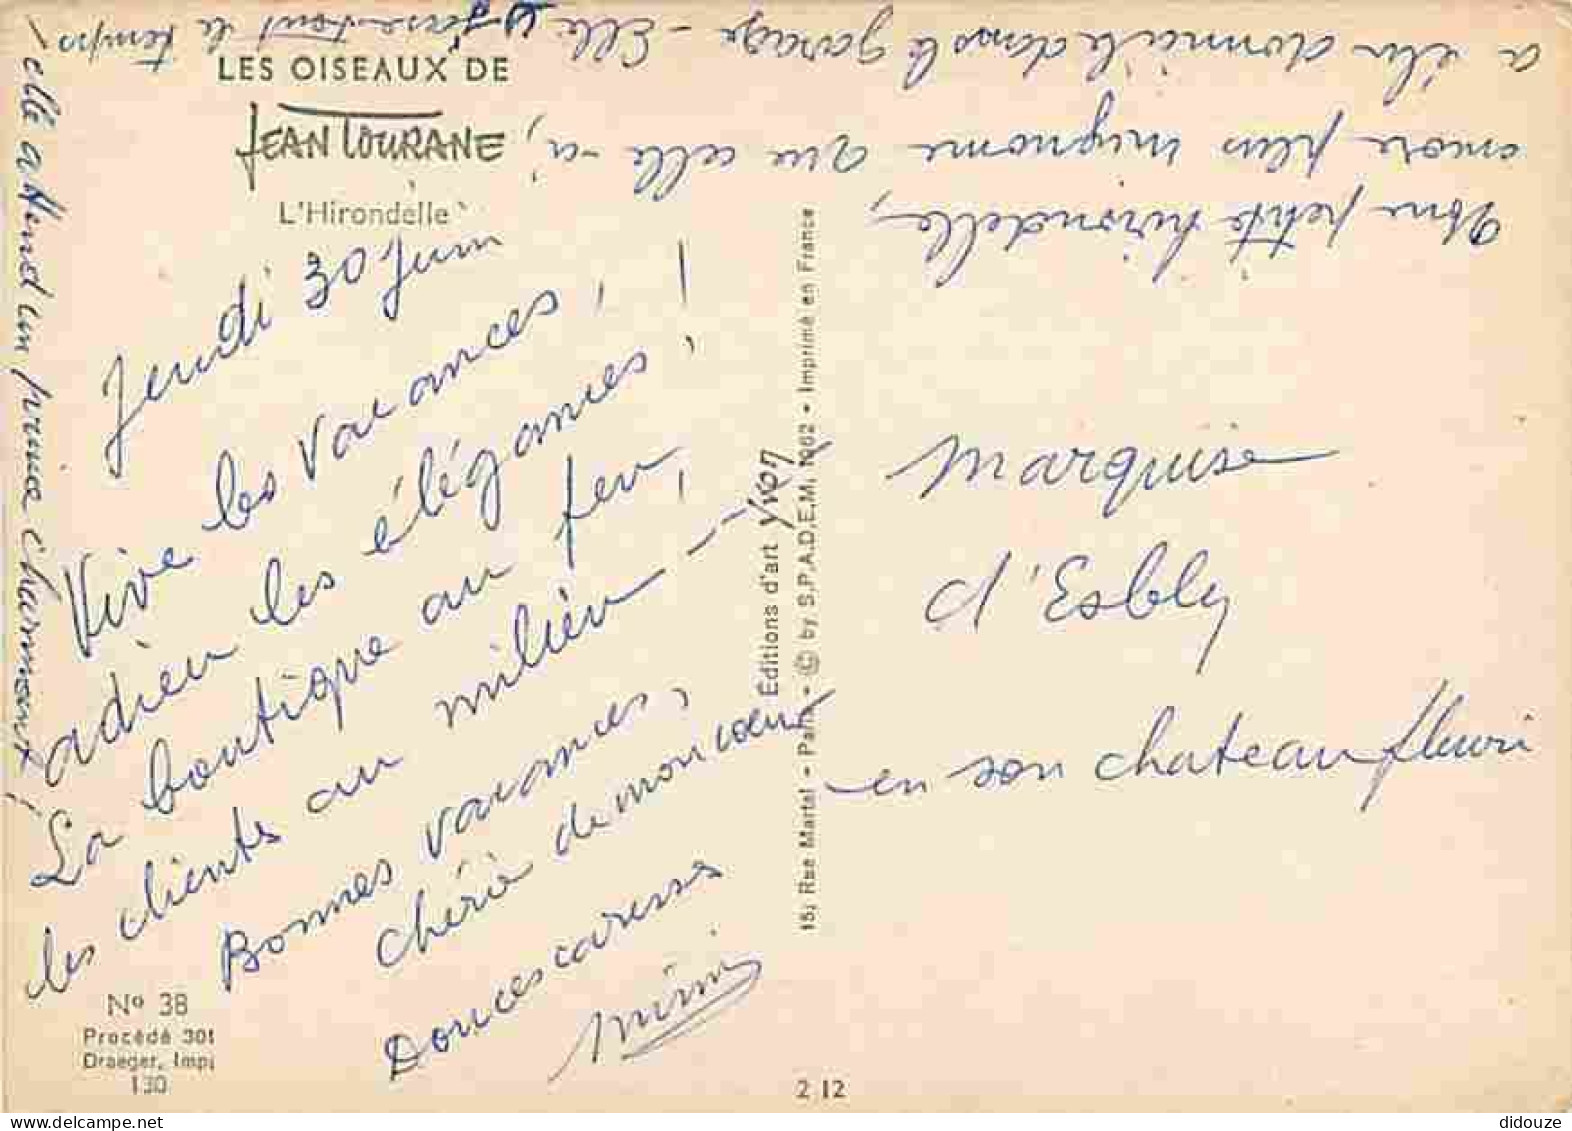 LES OISEAUX DE
JEAN TOURANE
L'Hirondelle
Jeudi 30 Juin
Vive les vacances !
adieu les élégances !
La boutique au feu,
les clients au milieu - -
Bonnes vacances,
chérie de mon cœur
Douces caresses
Mimi
Nº 38
Procédé 301
Draeger, Imp
130
Editions d'art Yvon
15, Rue Martel - Paris - © by S.P.A.D.E.M. 1962 • Imprimé en France
2 12
Marquise
d'Esbly
en son chateau fleuri
Une petite hirondelle,
encore plus mignonne que celle-ci,
a élu domicile dans le garage - Elle jase tout le temps
elle attend un prince charmant !
didouze